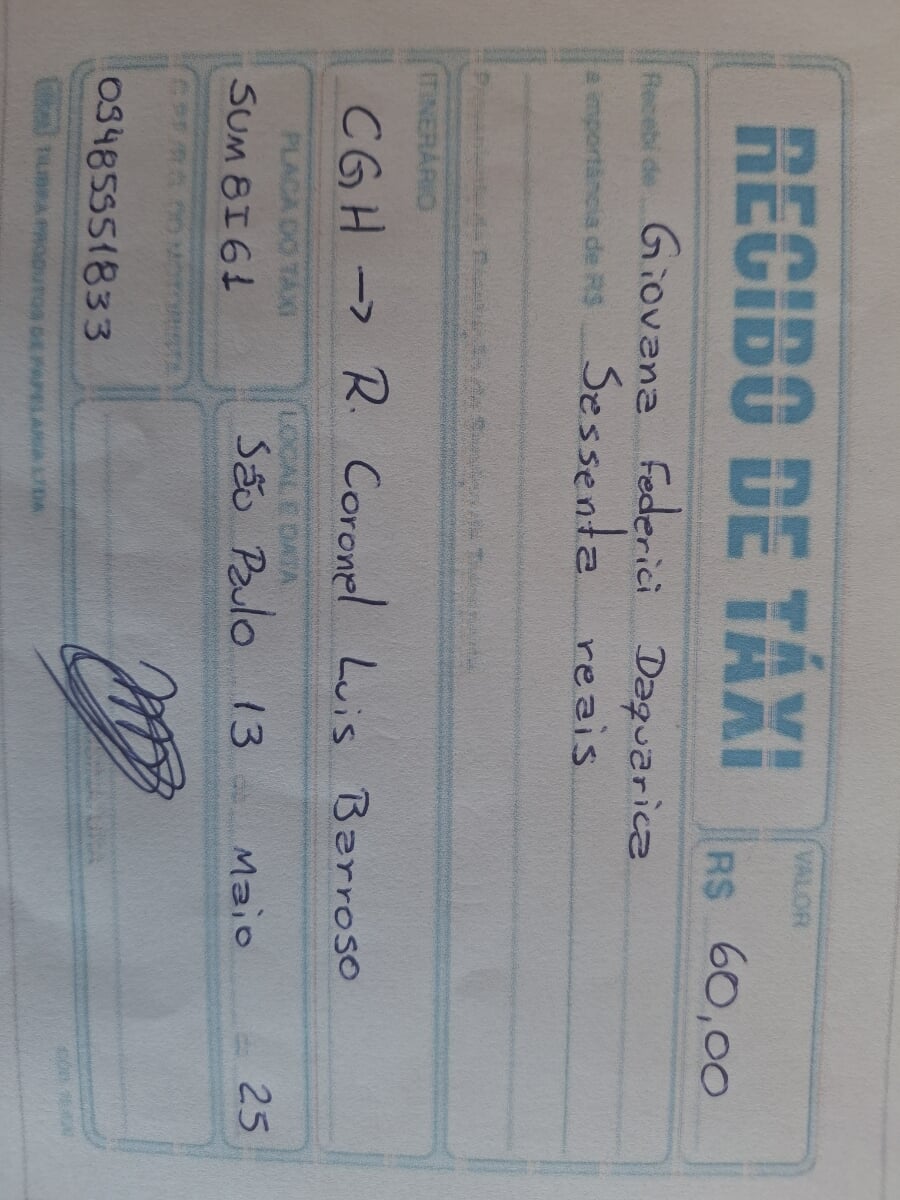 RECIBO DE TÁXI
VALOR
R$ 60,00
Recebi de Giovana Federici Daquarica
a importância de R$ Sessenta reais
ITINERÁRIO
CGH → R. Coronel Luis Barroso
PLACA DO TÁXI
SUM8I61
LOCAL E DATA
São Paulo 13 = Maio = 25
C.P.F./R.G. DO MOTORISTA
09485551833
TILIBRA PRODUTOS DE PAPELARIA LTDA